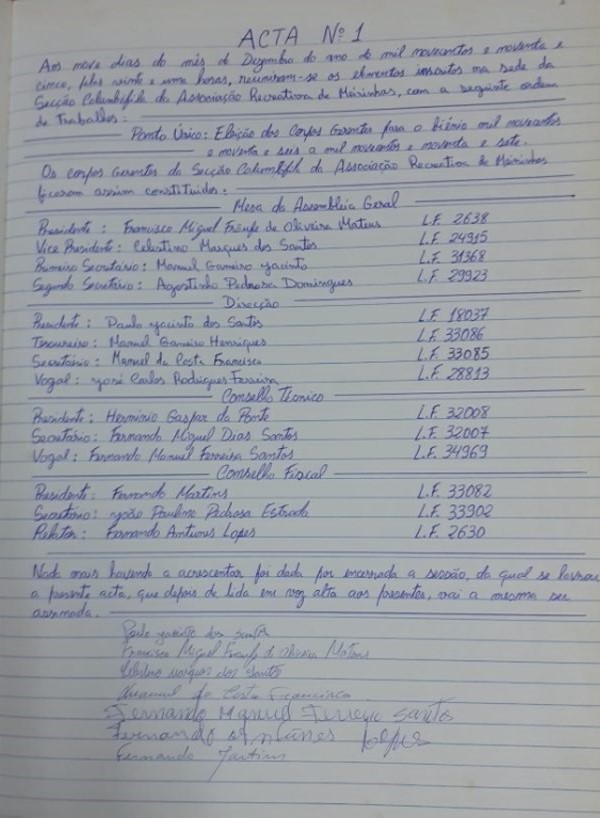 ACTA Nº 1
Aos nove dias do mês de Dezembro do ano de mil novecentos e noventa e
cinco, pelas vinte e uma horas, reuniram-se os elementos inscritos na sede da
Secção Columbófila da Associação Recreativa de Meirinhas, com a seguinte ordem
de Trabalhos:
Ponto Único: Eleição dos Corpos Gerentes para o biénio mil novecentos
e noventa e seis a mil novecentos e noventa e sete.
Os corpos Gerentes da Secção Columbófila da Associação Recreativa de Meirinhas
ficaram assim constituidos:
Mesa da Assembleia Geral
Presidente: Francisco Miguel de Oliveira Mateus L.F. 2638
Vice Presidente: Celestino Marques dos Santos L.F. 24915
Primeiro Secretário: Manuel Gameiro Jacinto L.F. 31368
Segundo Secretário: Agostinho Pedrosa Domingues L.F. 29923
Direcção
Presidente: Paulo Jacinto dos Santos L.F. 18037
Tesoureiro: Manuel Gameiro Henriques L.F. 33086
Secretário: Manuel da Costa Francisco L.F. 33085
Vogal: José Carlos Rodrigues Ferreira L.F. 28813
Conselho Técnico
Presidente: Herminio Gaspar da Ponte L.F. 32008
Secretário: Fernando Miguel Dias Santos L.F. 32007
Vogal: Fernando Manuel Ferreira Santos L.F. 34969
Conselho Fiscal
Presidente: Fernando Martins L.F. 33082
Secretário: João Paulino Pedrosa Estrada L.F. 33902
Relator: Fernando Antunes Lopes L.F. 2630
Nada mais havendo a acrescentar foi dada por encerrada a sessão, da qual se lavrou
a presente acta, que depois de lida em voz alta aos presentes, vai a mesma ser
assinada.
Paulo Jacinto dos Santos
Francisco Miguel de Oliveira Mateus
Celestino Marques dos Santos
Manuel da Costa Francisco
Fernando Manuel Ferreira Santos
Fernando Antunes Lopes
Fernando Martins